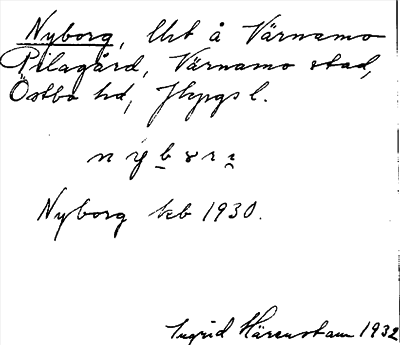 Nyborg, Ust å Värnamo
Pilagård, Värnamo stad,
Östbo hd, Jkpgs l.
Nyborg kb 1930.
Ingrid Härenstam 1932